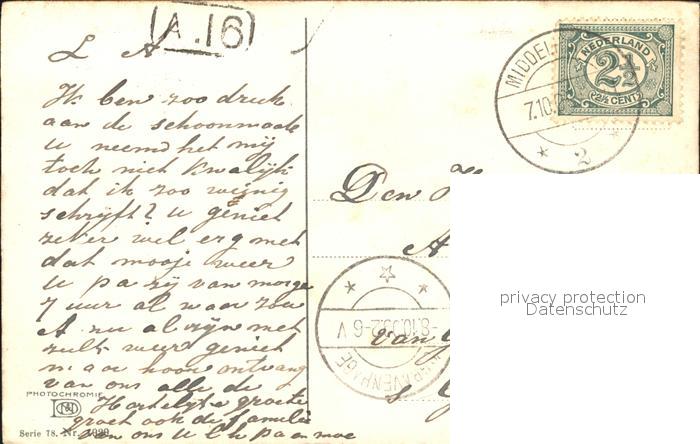 A.16
L A
Ik ben zoo druk
aan de schoonmaak
u neemd het mij
toch niet kwalijk
dat ik zoo wijnig
schrijft? u geniet
zeker wel erg met
dat mooje weer
u pa zij van morge
7 uur al waar zou
A nu al zijn met
zulk weer geniet
maar hoor ontvang
van ons alle de
Hartelijke groete
groet ook de familie
van ons U lh pa en moe
PHOTOCHROMIE
Serie 78. Nr.
NEDERLAND
2½
(2½ CENT)
MIDDEL
7.10.
2
Den
A
van
-8.10.09.2-6 V
'S-GRAVENHAGE
privacy protection
Datenschutz